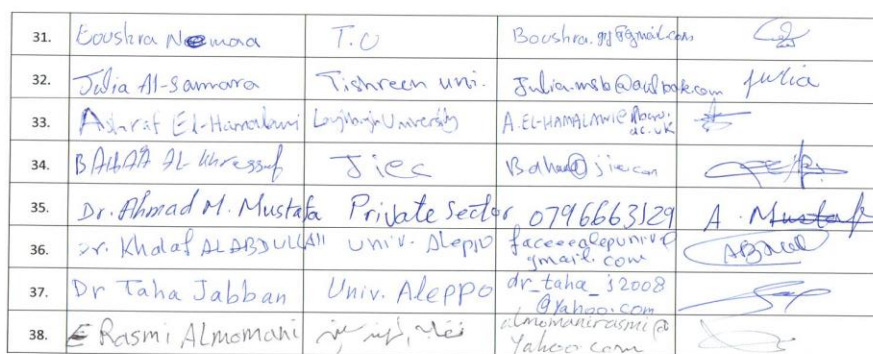 31. Boushra Nemaa T.U Boushra.gg@gmail.com
32. Julia Al-Samara Tishreen uni. Julia.msb@outlook.com Julia
33. Ashraf El-Hamalawi University A.EL-HAMALAWI@ ac.uk
34. BAHAA AL Jiec
35. Dr. Ahmad M. Mustafa Private sector 0796663529 A. Mustafa
36. Dr. Khalaf ALABDULLAH Univ. Aleppo gmail.com
37. Dr Taha Jabban Univ. Aleppo dr_taha_j2008 @yahoo.com
38. Rasmi Almomani almomanirasmi@ Yahoo.com